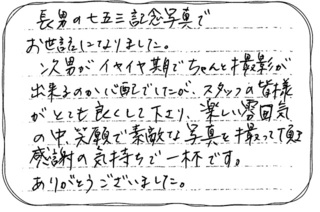 長男の七五三記念写真で
お世話になりました。
次男がイヤイヤ期でちゃんと撮影が
出来るのか心配でしたが、スタッフの皆様
がとても良くして下さり、楽しい雰囲気
の中、笑顔で素敵な写真を撮って頂き
感謝の気持ちで一杯です。
ありがとうございました。